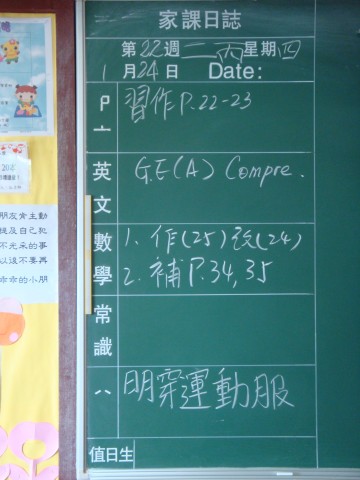 家課日誌
第22週 二丙 星期四
1月24日 Date:
習作P.22-23
英文
G.E(A) Compre.
數學
1. 作(25)
2. 補P.34,35
常識
明穿運動服
值日生
朋友肯主動
提及自己犯
不光采的事
以後不要再
乖乖的小朋